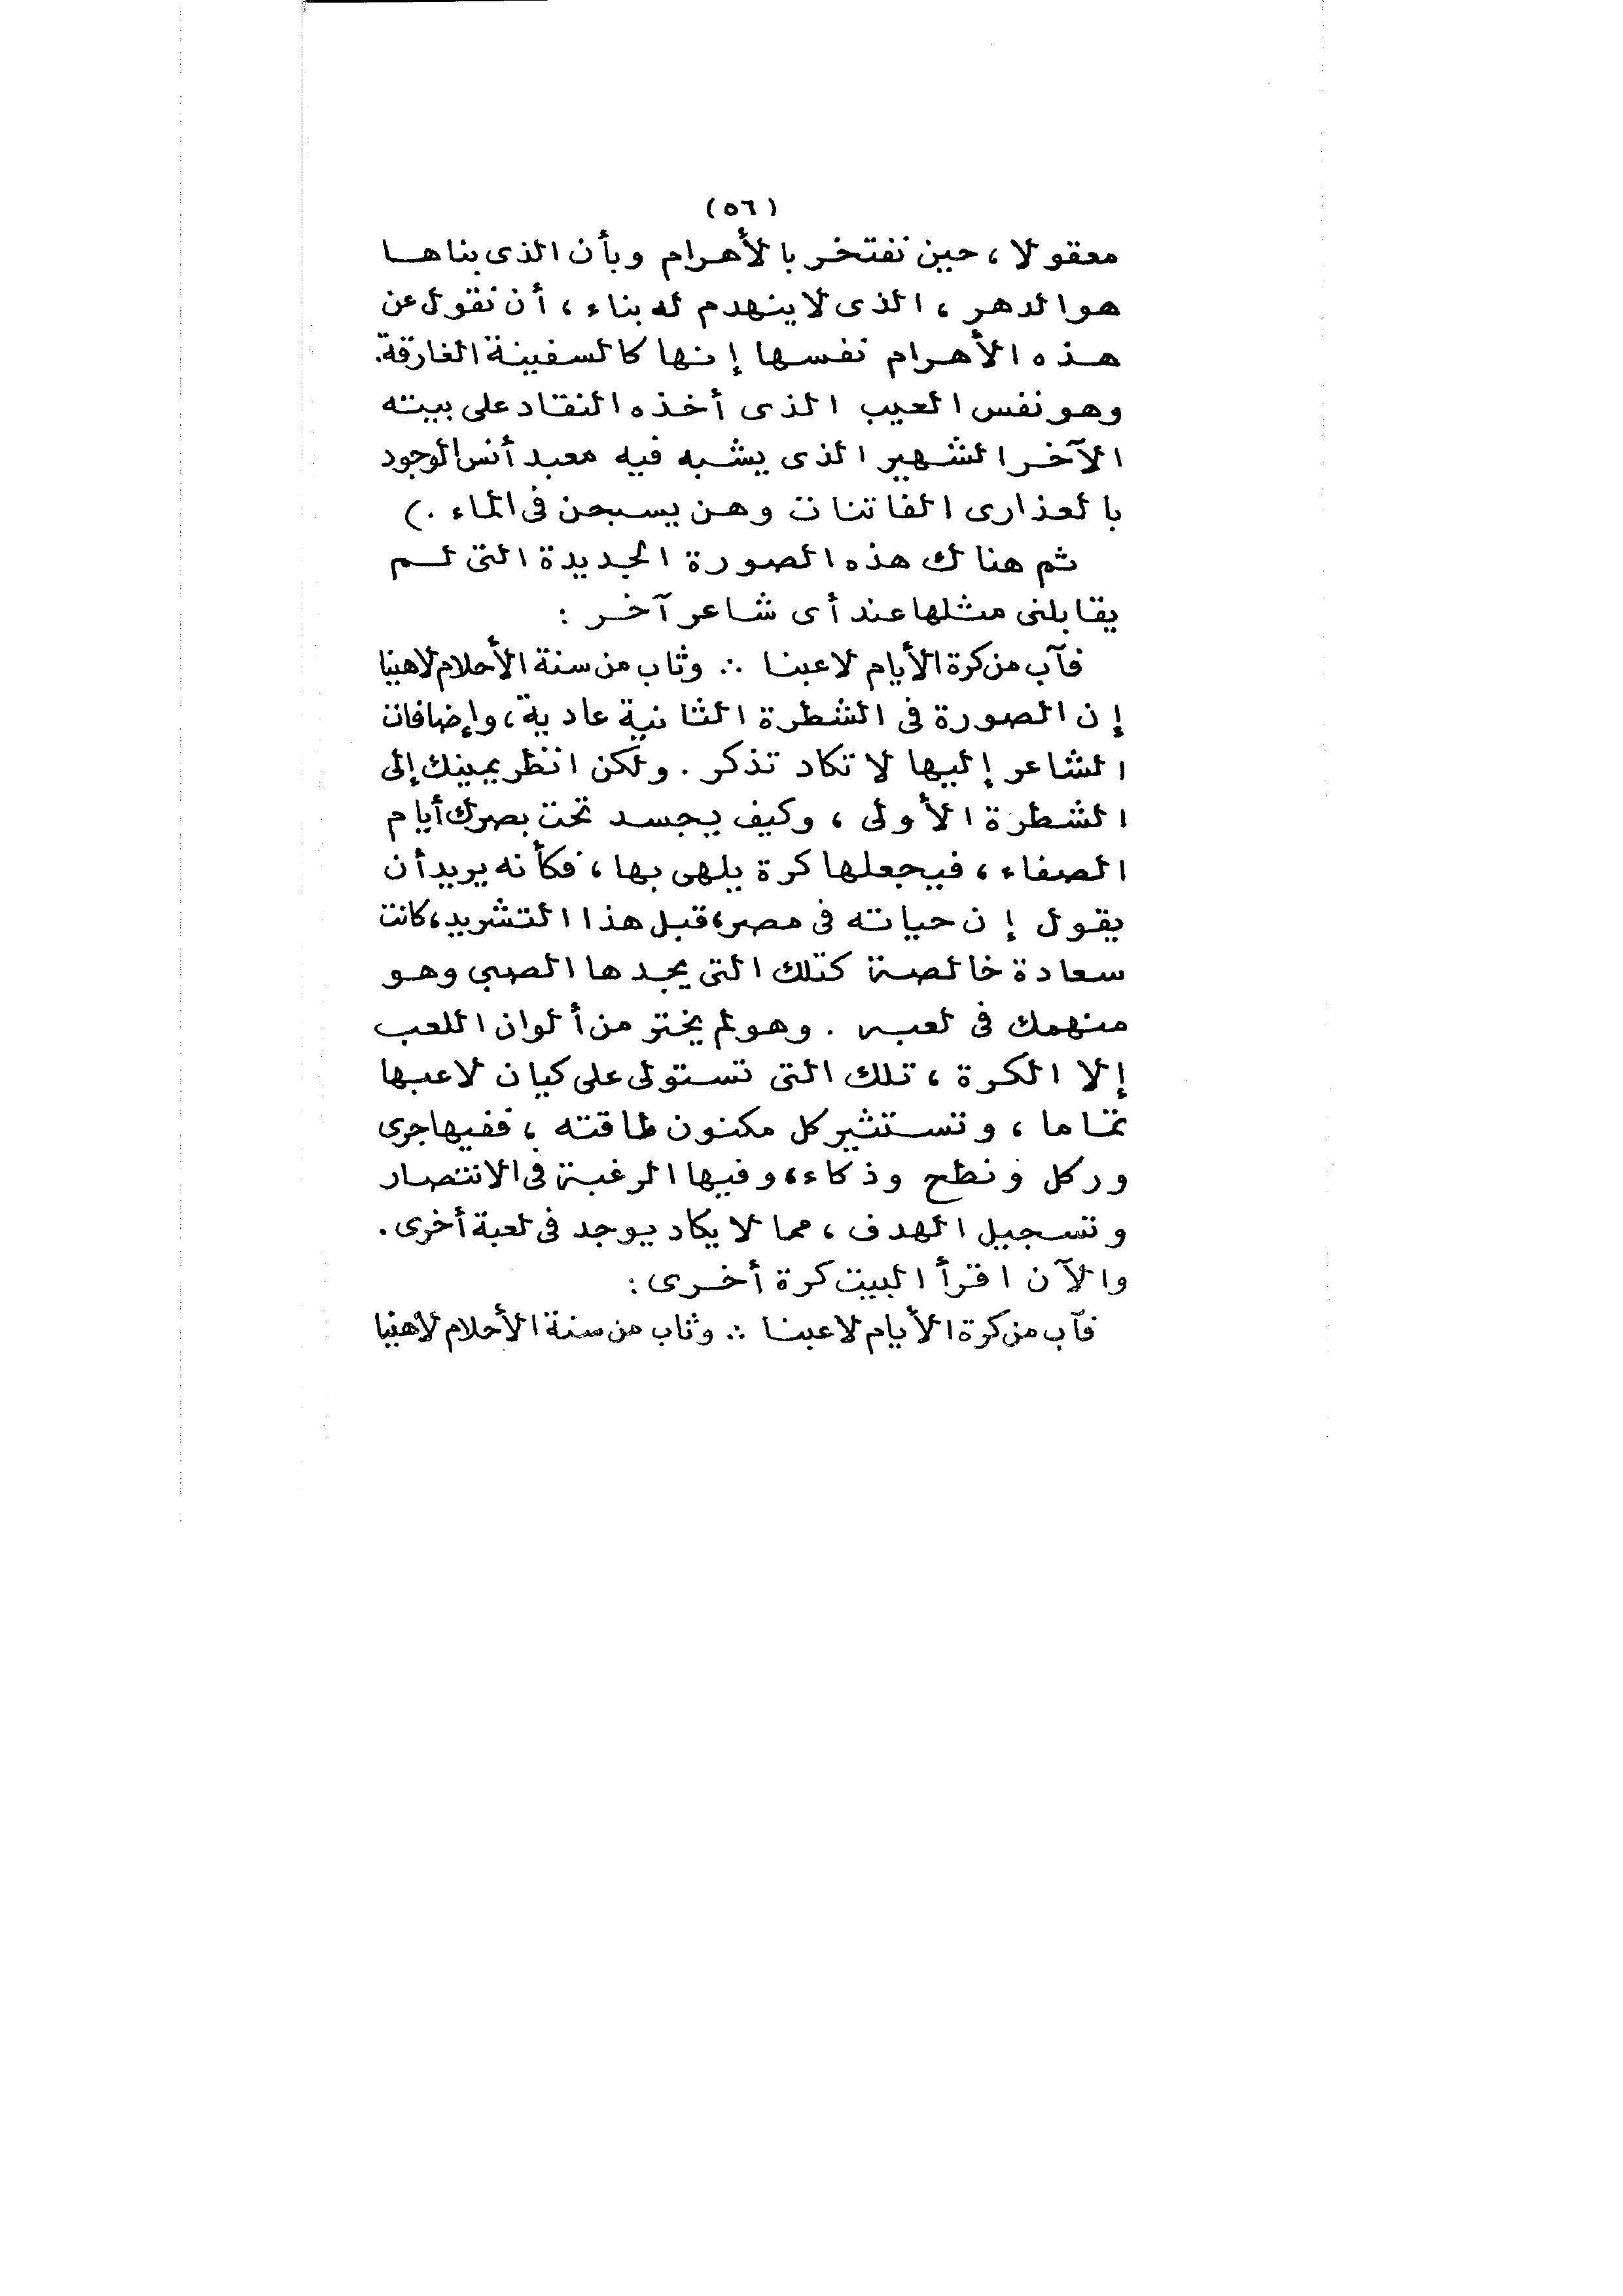 (٥٦)
معقولا ، حين نفتخر بالأهرام وبأن الذى بناها
هو الدهر ، الذى لا ينهدم له بناء ، أن نقول عن
هذه الأهرام نفسها إنها كالسفينة الغارقة.
وهو نفس العيب الذى أخذه النقاد على بيته
الآخر الشهير الذى يشبه فيه معبد أنس الوجود
بالعذارى الفاتنات وهن يسبحن فى الماء .)
ثم هناك هذه الصورة الجديدة التى لم
يقابلنى مثلها عند أى شاعر آخر :
فآب من كرة الأيام لاعبنا ∴ وثاب من سنة الأحلام لاهينا
إن الصورة فى الشطرة الثانية عادية ، وإضافات
الشاعر إليها لا تكاد تذكر . ولكن انظر بعينك إلى
الشطرة الأولى ، وكيف يجسد تحت بصرك أيام
الصفاء ، فيجعلها كرة يلهى بها ، فكأنه يريد أن
يقول إن حياته فى مصر ، قبل هذا التشريد ، كانت
سعادة خالصة كتلك التى يجدها الصبى وهو
منهمك فى لعبه . وهو لم يختر من ألوان اللعب
إلا الكرة ، تلك التى تستولى على كيان لاعبها
تماما ، وتستثير كل مكنون طاقته ، ففيها جرى
وركل ونطح وذكاء ، وفيها الرغبة فى الانتصار
وتسجيل الهدف ، مما لا يكاد يوجد فى لعبة أخرى .
والآن اقرأ البيت كرة أخرى :
فآب من كرة الأيام لاعبنا ∴ وثاب من سنة الأحلام لاهينا